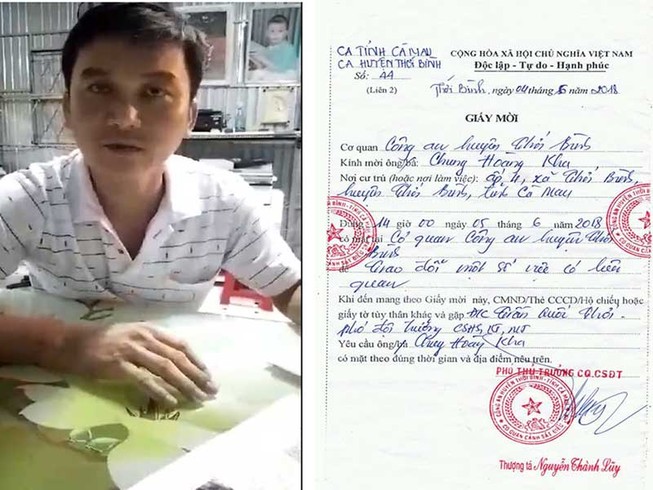 CA TỈNH CÀ MAU
CA HUYỆN THỚI BÌNH
Số: 44
(Liên 2)
CỘNG HÒA XÃ HỘI CHỦ NGHĨA VIỆT NAM
Độc lập - Tự do - Hạnh phúc
Thới Bình, ngày 04 tháng 6 năm 2018
GIẤY MỜI
Cơ quan Công an huyện Thới Bình
Kính mời ông/bà: Chung Hoàng Kha
Nơi cư trú (hoặc nơi làm việc): xã Thới Bình,
huyện Thới Bình, tỉnh Cà Mau
Đúng 14 giờ 00 ngày 05 tháng 6 năm 2018
có mặt tại Cơ quan Công an huyện Thới
Bình
để Trao đổi một số việc có liên
quan
Khi đến mang theo Giấy mời này, CMND/Thẻ CCCD/Hộ chiếu hoặc
giấy tờ tùy thân khác và gặp ĐC Trần Quốc Thới -
phó đội trưởng CSHS, KT, MT
Yêu cầu ông/bà Chung Hoàng Kha
có mặt theo đúng thời gian và địa điểm nêu trên.
PHÓ THỦ TRƯỞNG CQ.CSĐT
CÔNG AN HUYỆN THỚI BÌNH - TỈNH CÀ MAU
CƠ QUAN CẢNH SÁT ĐIỀU TRA
Thượng tá Nguyễn Thành Lũy